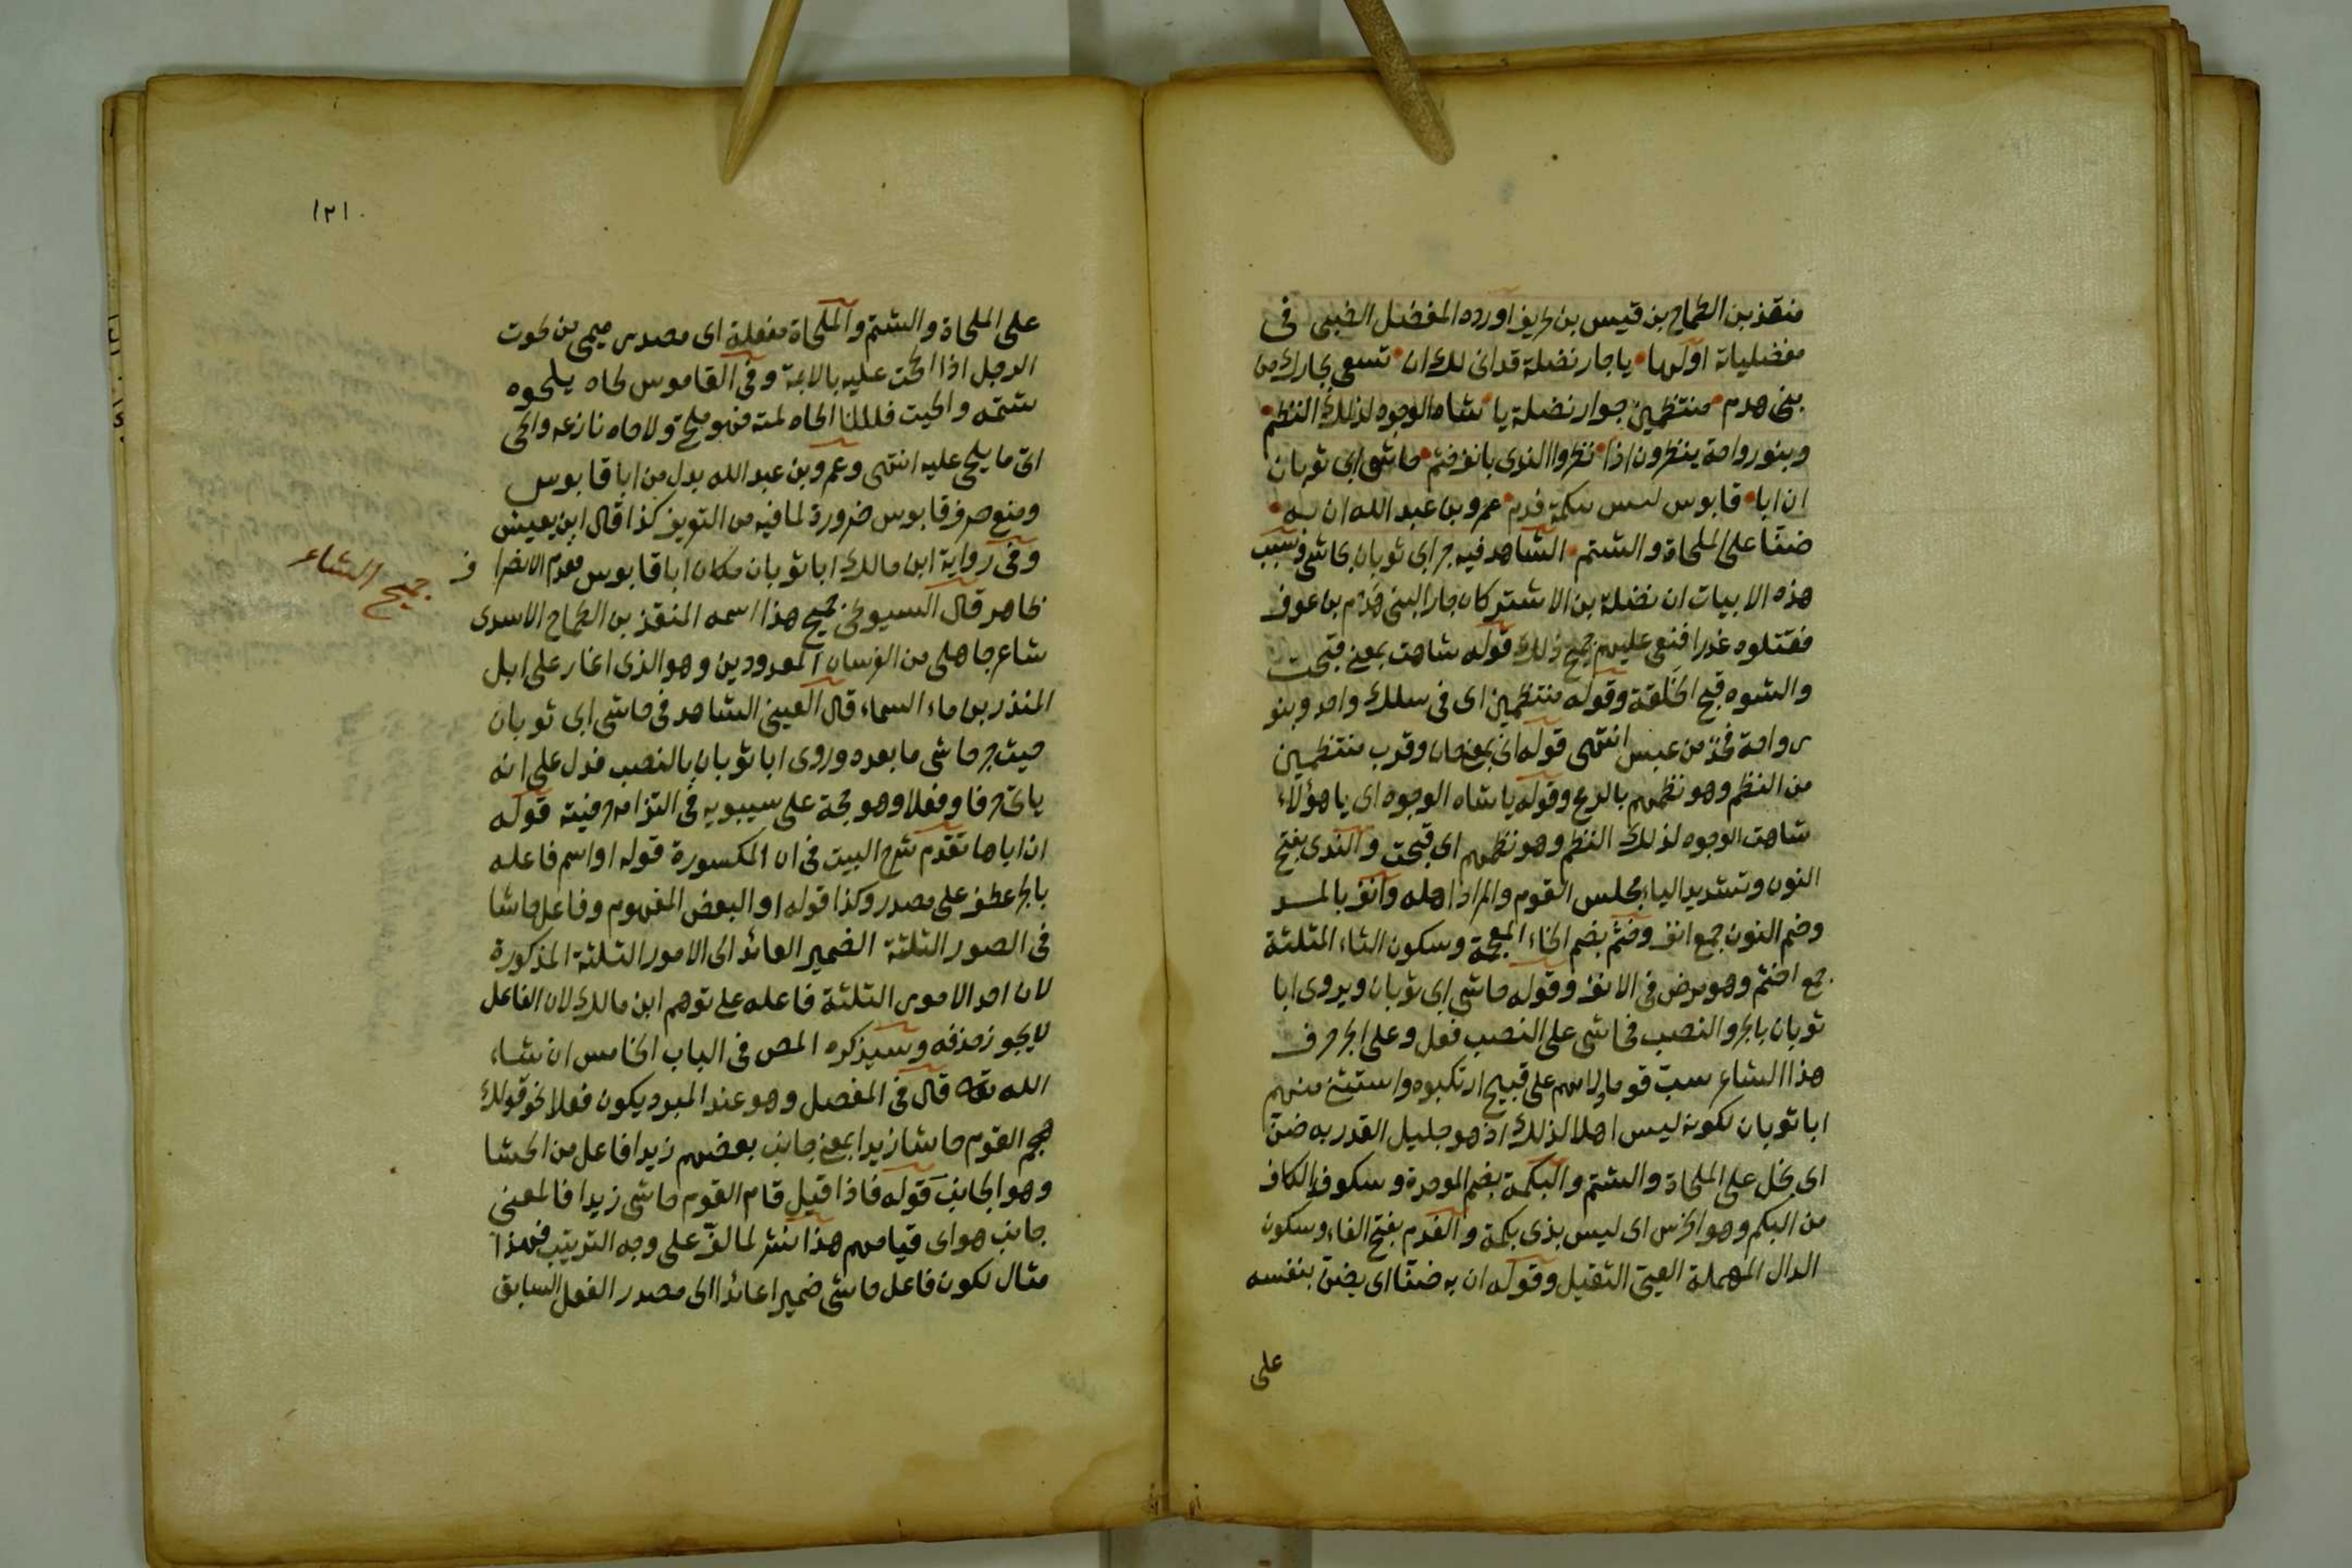 منقذ بن الطماح بن قيس بن طريف اورده المفضل الضبى فى
مفضلياته اولها ياجار نضلة قد انى لك ان تسعى بجارك من
بنى هدم منتظمين جوار نضلة يا شاه الوجوه لذلك النظم
وبنو رواحة ينظرون اذا نظروا الندى بانف خثم حاشى ابى ثوبان
ان ابا قابوس ليس ببكمة فدم عمرو بن عبد الله ان به
ضنا على الملحاة والشتم الشاهد فيه جر ابى ثوبان بحاشى وسبب
هذه الابيات ان نضلة بن الاشتر كان جارا لبنى هدم بن عوف
فقتلوه غدرا فنعى عليهم جميح ذلك قوله شاهت بمعنى قبحت
والشوه قبح الخلقة وقوله منتظمين اى فى سلك واحد وبنو
رواحة فخذ من عبس انتهى قوله انى بمعنى حان وقرب منتظمين
من النظم وهو نظمهم بالرمح وقوله ياشاه الوجوه اى يا هؤلاء
شاهت الوجوه لذلك النظم وهو نظمهم اى قبحت والندى بفتح
النون وتشديد الياء مجلس القوم والمراد اهله وآنف بالمد
وضم النون جمع انف وخثم بضم الخاء المعجمة وسكون الثاء المثلثة
جمع اخثم وهو مرض فى الانف وقوله حاشى ابى ثوبان ويروى ابا
ثوبان بالجر والنصب فحاشى على النصب فعل وعلى الجر حرف
هذا الشاعر سب قوما ولامهم على قبيح ارتكبوه واستثنى منهم
ابا ثوبان لكونه ليس اهلا لذلك اذ هو جليل القدر به ضن
اى بخل على الملحاة والشتم والبكمة بضم الموحدة وسكون الكاف
من البكم وهو الخرس اى ليس بذى بكمة والفدم بفتح الفاء وسكون
الدال المهملة العيى الثقيل وقوله ان به ضنا اى يضن بنفسه
على
١٢١
على الملحاة والشتم والملحاة مفعلة اى مصدر ميمى من لحوت
الرجل اذا الححت عليه باللائمة وفى القاموس لحاه يلحوه
شتمه والحيت فلانا الحاه لمته فهو ملحى ولاحاه نازعه والحى
اتى ما يلحى عليه انتهى وعمرو بن عبد الله بدل من ابا قابوس
ومنع صرف قابوس ضرورة لما فيه من التعريف كذا قال ابن يعيش
وفى رواية ابن مالك ابا ثوبان مكان ابا قابوس فعدم الانصراف
جميح الشاعر
ظاهر قال السيوطى جميح هذا اسمه المنقذ بن الطماح الاسدى
شاعر جاهلى من الفرسان المعدودين وهو الذى اغار على ابل
المنذر بن ماء السماء قال العينى الشاهد فى حاشى ابى ثوبان
حيث جر حاشى ما بعده وروى ابا ثوبان بالنصب فدل على انه
ياتى حرفا وفعلا وهو حجة على سيبويه فى التزام حرفيته قوله
ان اباها تقدم شرح البيت فى ان المكسورة قوله او اسم فاعله
بالجر عطف على مصدر وكذا قوله او البعض المفهوم وفاعل حاشا
فى الصور الثلثة الضمير العائد الى الامور الثلثة المذكورة
لان احد الامور الثلثة فاعله على توهم ابن مالك لان الفاعل
لا يجوز حذفه وسيذكره المص فى الباب الخامس ان شاء
الله تعالى قال فى المفصل وهو عند المبرد يكون فعلا نحو قولك
هجم القوم حاشا زيدا بمعنى جانب بعضهم زيدا فاعل من الحشا
وهو الجانب قوله فاذا قيل قام القوم حاشى زيدا فالمعنى
جانب هو اى قيامهم هذا نشر لما لف على وجه الترتيب فهذا
مثال لكون فاعل حاشى ضميرا عائدا الى مصدر الفعل السابق